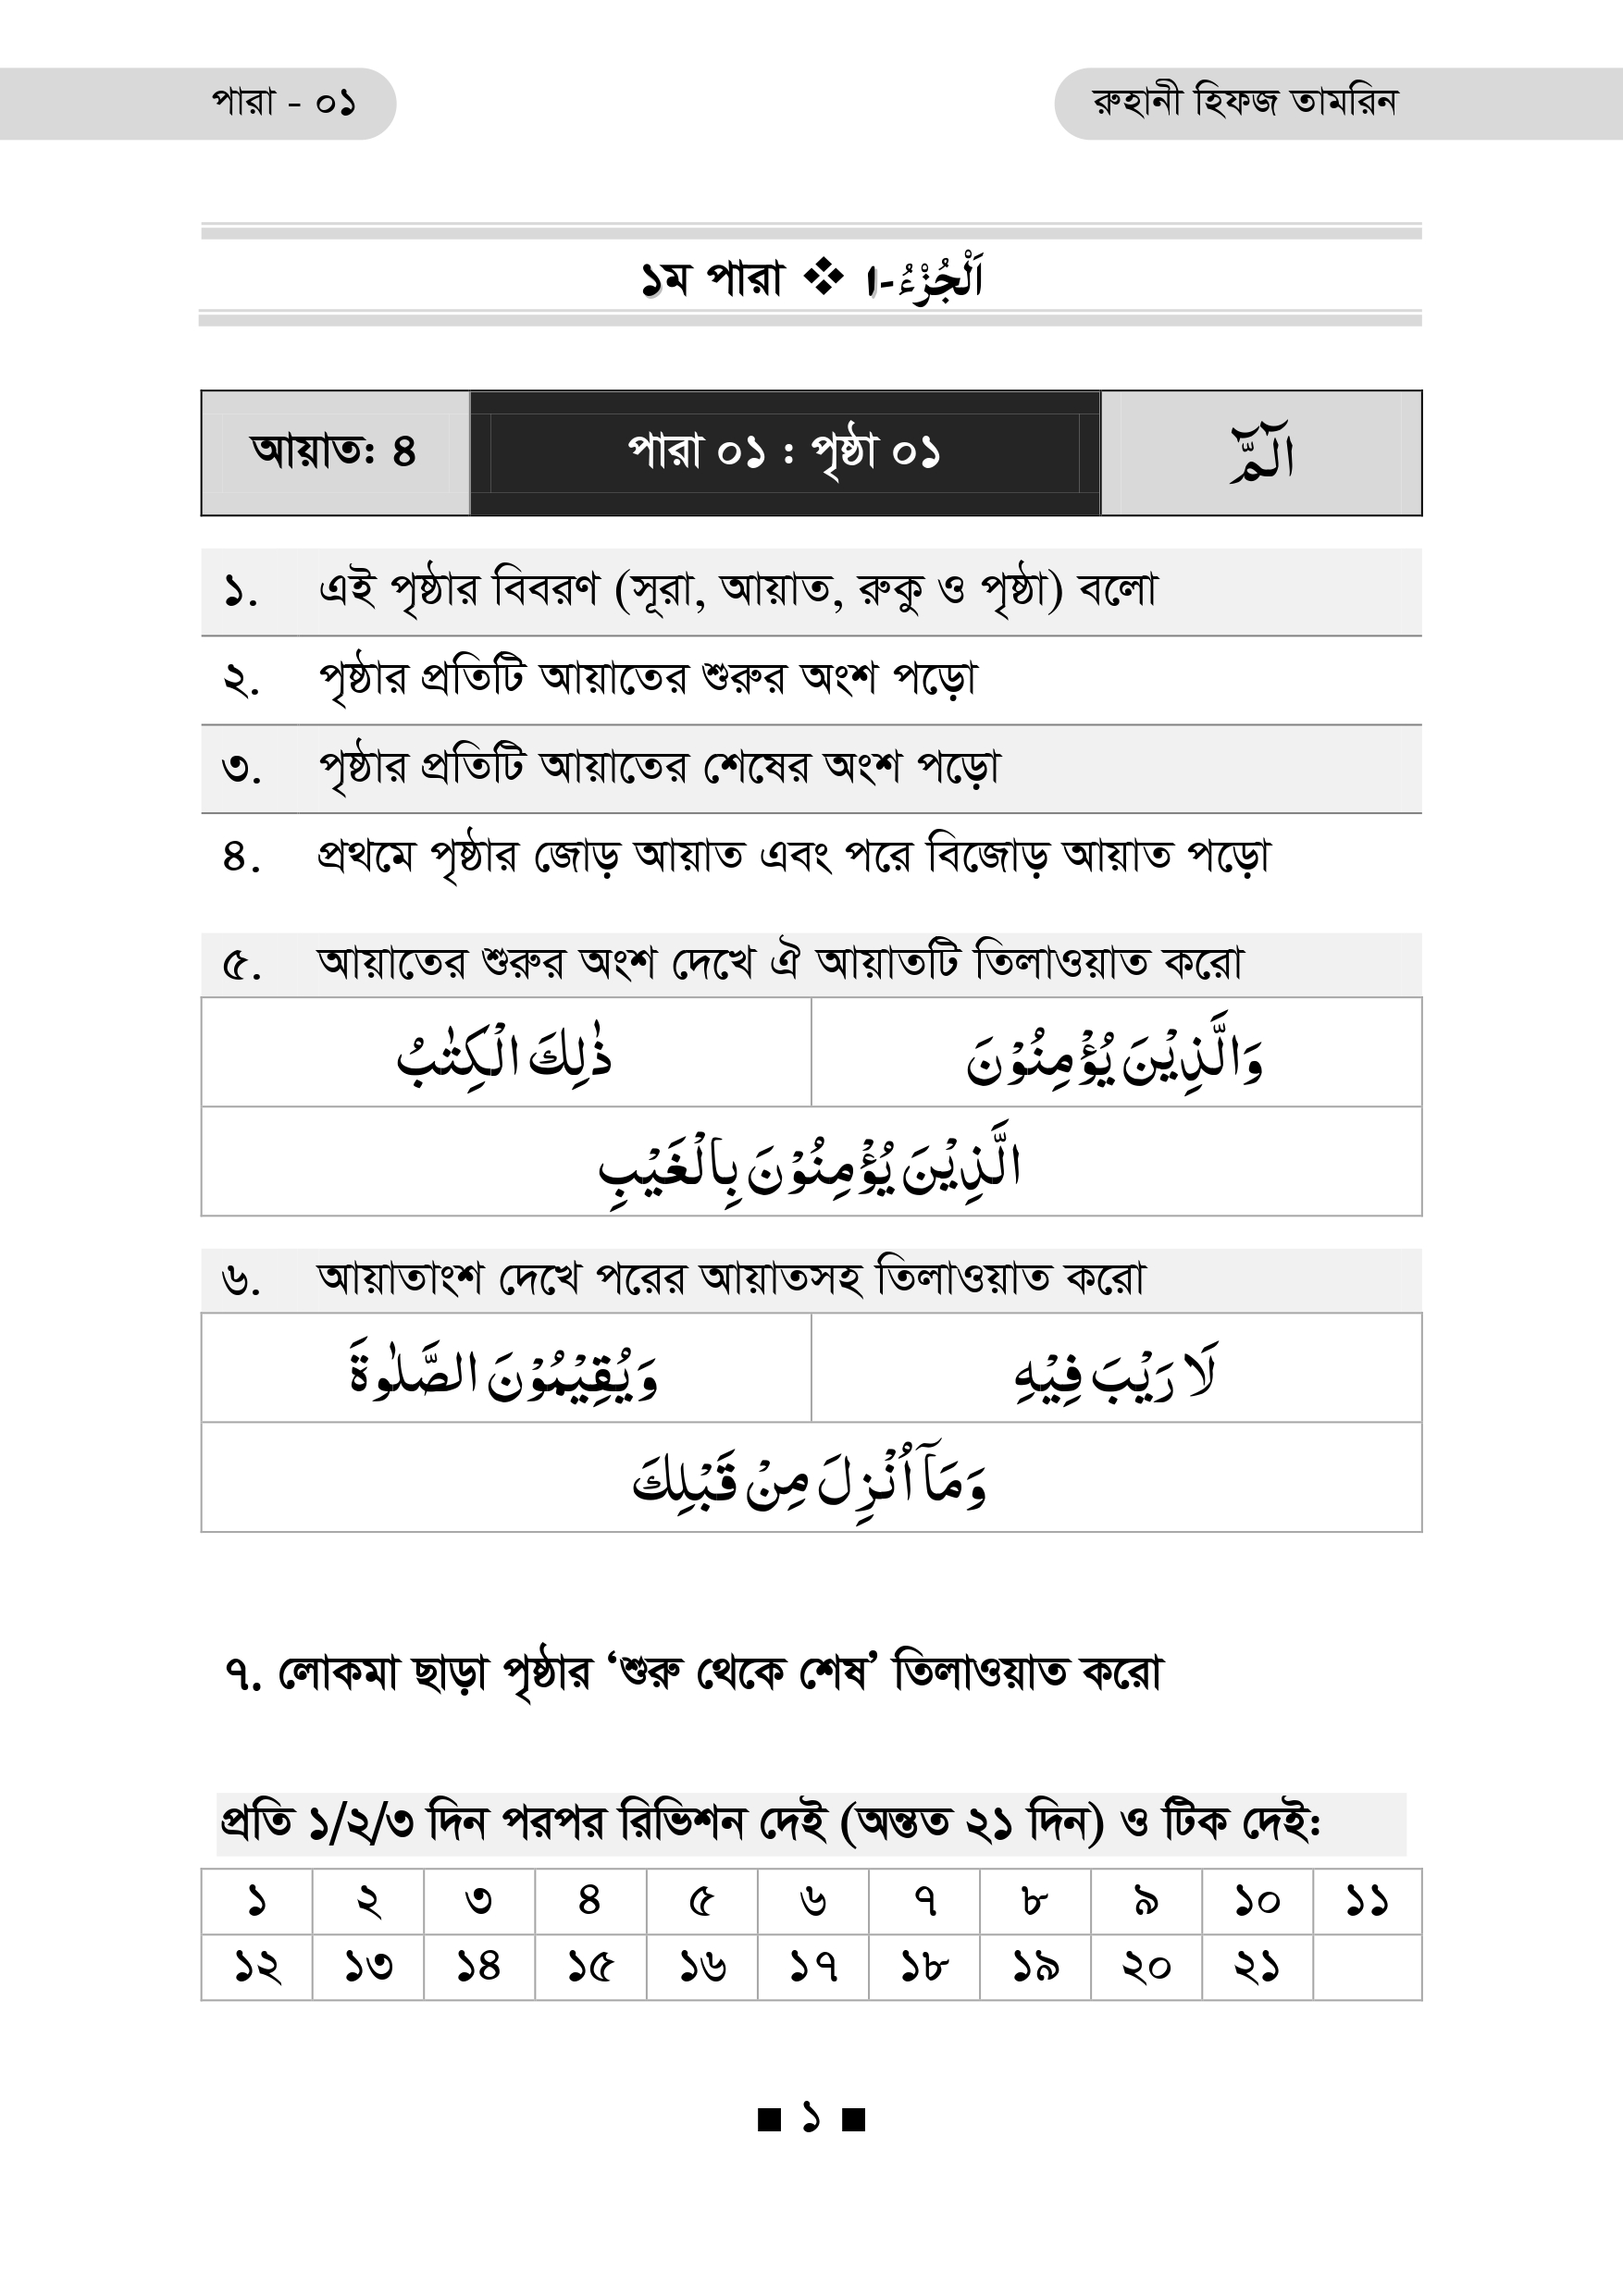 পারা - ০১
রুহানী হিফজ তামরিন
১ম পারা ❖ اَلْجُزْءُ-١
আয়াত: ৪
পারা ০১ : পৃষ্ঠা ০১
الٓمّٓ
১. এই পৃষ্ঠার বিবরণ (সূরা, আয়াত, রুকু ও পৃষ্ঠা) বলো
২. পৃষ্ঠার প্রতিটি আয়াতের শুরুর অংশ পড়ো
৩. পৃষ্ঠার প্রতিটি আয়াতের শেষের অংশ পড়ো
৪. প্রথমে পৃষ্ঠার জোড় আয়াত এবং পরে বিজোড় আয়াত পড়ো
৫. আয়াতের শুরুর অংশ দেখে ঐ আয়াতটি তিলাওয়াত করো
ذٰلِكَ الْكِتٰبُ
وَالَّذِيْنَ يُؤْمِنُوْنَ
الَّذِيْنَ يُؤْمِنُوْنَ بِالْغَيْبِ
৬. আয়াতাংশ দেখে পরের আয়াতসহ তিলাওয়াত করো
وَيُقِيْمُوْنَ الصَّلٰوةَ
لَا رَيْبَ فِيْهِ
وَمَآ اُنْزِلَ مِنْ قَبْلِكَ
৭. লোকমা ছাড়া পৃষ্ঠার ‘শুরু থেকে শেষ’ তিলাওয়াত করো
প্রতি ১/২/৩ দিন পরপর রিভিশন দেই (অন্তত ২১ দিন) ও টিক দেই:
১ ২ ৩ ৪ ৫ ৬ ৭ ৮ ৯ ১০ ১১
১২ ১৩ ১৪ ১৫ ১৬ ১৭ ১৮ ১৯ ২০ ২১
■ ১ ■